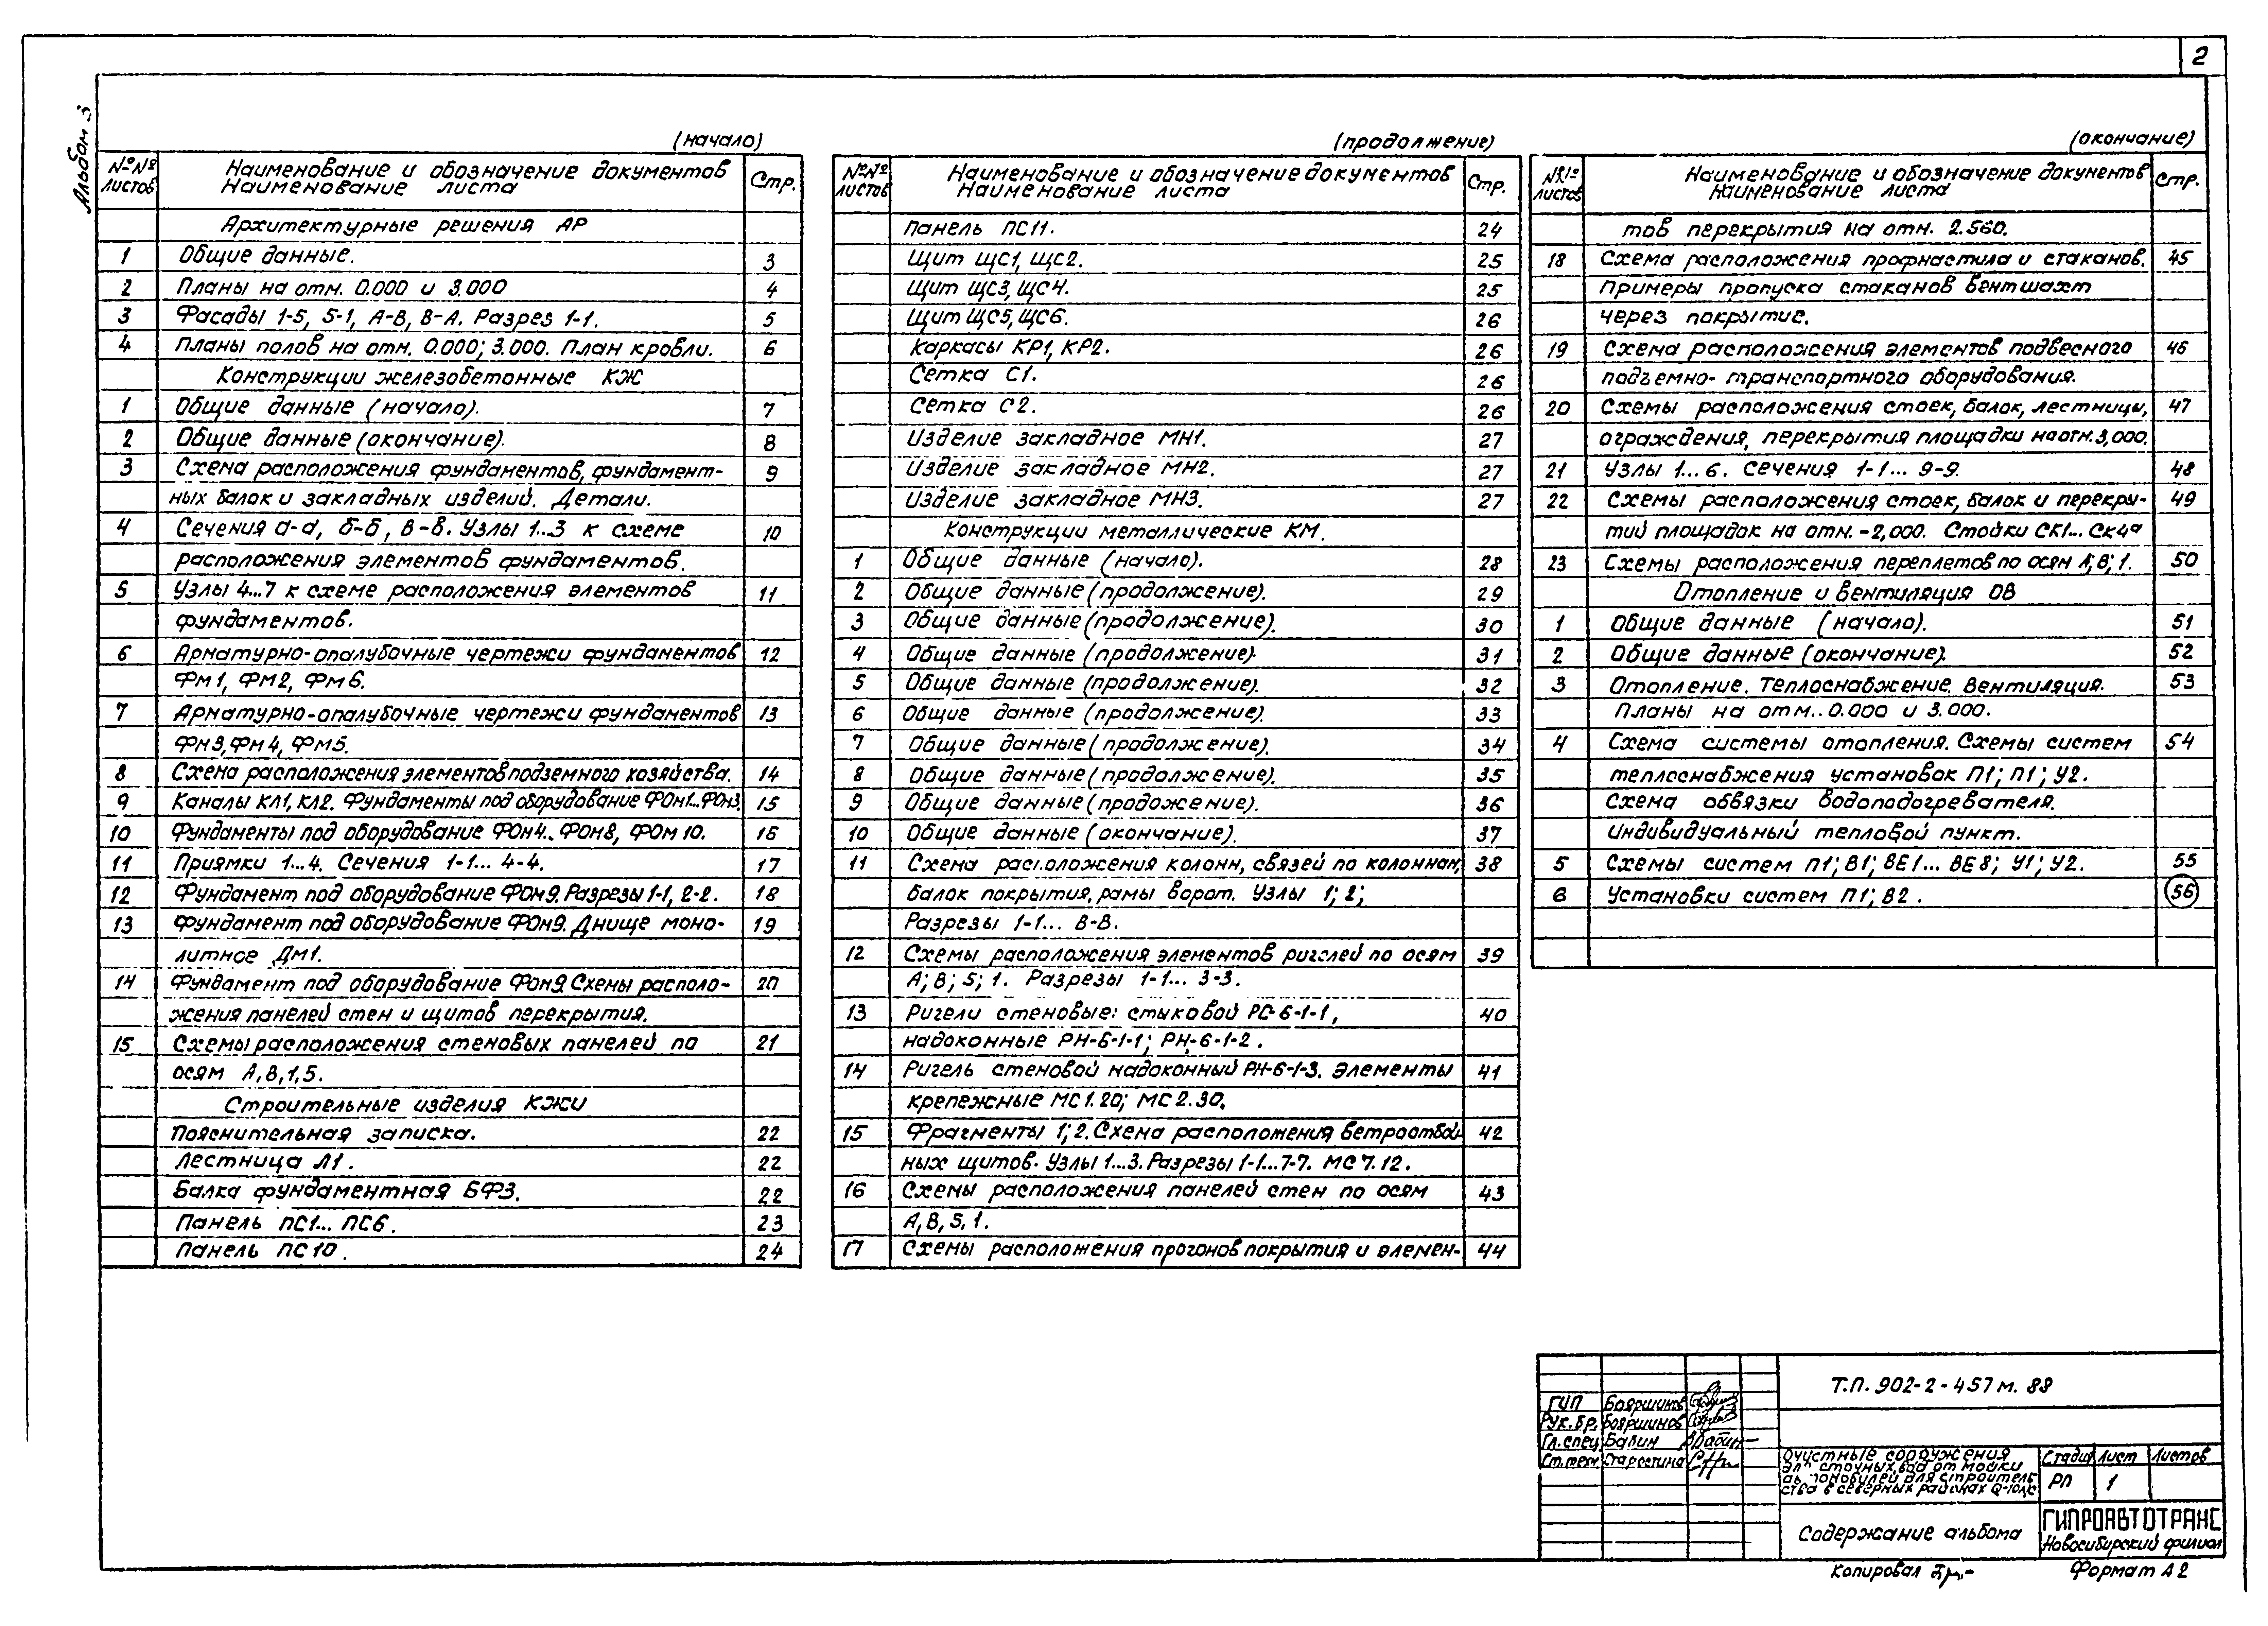 2
Альбом 3
(начало)
№№ листов Наименование и обозначение документов Наименование листа Стр.
Архитектурные решения АР
1 Общие данные. 3
2 Планы на отм. 0.000 и 3.000 4
3 Фасады 1-5, 5-1, А-В, В-А. Разрез 1-1. 5
4 Планы полов на отм. 0.000; 3.000. План кровли. 6
Конструкции железобетонные КЖ
1 Общие данные (начало). 7
2 Общие данные (окончание). 8
3 Схема расположения фундаментов, фундамент- 9
ных балок и закладных изделий. Детали.
4 Сечения а-а, б-б, в-в. Узлы 1...3 к схеме 10
расположения элементов фундаментов.
5 Узлы 4...7 к схеме расположения элементов 11
фундаментов.
6 Арматурно-опалубочные чертежи фундаментов 12
Фм1, Фм2, Фм6.
7 Арматурно-опалубочные чертежи фундаментов 13
Фм3, Фм4, Фм5.
8 Схема расположения элементов подземного хозяйства. 14
9 Каналы КЛ1, КЛ2. Фундаменты под оборудование ФОм1...ФОм3. 15
10 Фундаменты под оборудование ФОм4...ФОм8, ФОм 10. 16
11 Приямки 1...4. Сечения 1-1... 4-4. 17
12 Фундамент под оборудование ФОм9. Разрезы 1-1, 2-2. 18
13 Фундамент под оборудование ФОм9. Днище моно- 19
литное Дм1.
14 Фундамент под оборудование ФОм9. Схемы располо- 20
жения панелей стен и щитов перекрытия.
15 Схемы расположения стеновых панелей по 21
осям А, В, 1, 5.
Строительные изделия КЖИ
Пояснительная записка. 22
Лестница Л1. 22
Балка фундаментная БФ3. 22
Панель ПС1... ПС6. 23
Панель ПС10. 24
(продолжение)
№№ листов Наименование и обозначение документов Наименование листа Стр.
Панель ПС11. 24
Щит ЩС1, ЩС2. 25
Щит ЩС3, ЩС4. 25
Щит ЩС5, ЩС6. 26
Каркасы КР1, КР2. 26
Сетка С1. 26
Сетка С2. 26
Изделие закладное МН1. 27
Изделие закладное МН2. 27
Изделие закладное МН3. 27
Конструкции металлические КМ.
1 Общие данные (начало). 28
2 Общие данные (продолжение). 29
3 Общие данные (продолжение). 30
4 Общие данные (продолжение). 31
5 Общие данные (продолжение). 32
6 Общие данные (продолжение). 33
7 Общие данные (продолжение). 34
8 Общие данные (продолжение). 35
9 Общие данные (продожение). 36
10 Общие данные (окончание). 37
11 Схема расположения колонн, связей по колоннам, 38
балок покрытия, рамы ворот. Узлы 1; 2;
Разрезы 1-1... 8-8.
12 Схемы расположения элементов ригелей по осям 39
А; В; 5; 1. Разрезы 1-1... 3-3.
13 Ригели стеновые: стыковой РС-6-1-1, 40
надоконные РН-6-1-1; РН-6-1-2.
14 Ригель стеновой надоконный РН-6-1-3. Элементы 41
крепежные МС1.20; МС2.30.
15 Фрагменты 1; 2. Схема расположения ветроотбой- 42
ных щитов. Узлы 1...3. Разрезы 1-1...7-7. МС7.12.
16 Схемы расположения панелей стен по осям 43
А, В, 5, 1.
17 Схемы расположения прогонов покрытия и элемен- 44
(окончание)
№№ листов Наименование и обозначение документов Наименование листа Стр.
тов перекрытия на отм. 2.560.
18 Схема расположения профнастила и стаканов. 45
Примеры пропуска стаканов вентшахт
через покрытие.
19 Схема расположения элементов подвесного 46
подъемно-транспортного оборудования.
20 Схемы расположения стоек, балок, лестницы, 47
ограждения, перекрытия площадки на отм. 3,000.
21 Узлы 1... 6. Сечения 1-1... 9-9. 48
22 Схемы расположения стоек, балок и перекры- 49
тий площадок на отм. -2,000. Стойки СК1... СК4а
23 Схемы расположения переплетов по осям А; В; 1. 50
Отопление и вентиляция ОВ
1 Общие данные (начало). 51
2 Общие данные (окончание). 52
3 Отопление. Теплоснабжение. Вентиляция. 53
Планы на отм.. 0.000 и 3.000.
4 Схема системы отопления. Схемы систем 54
теплоснабжения установок П1; П1; У2.
Схема обвязки водоподогревателя.
Индивидуальный тепловой пункт.
5 Схемы систем П1; В1; ВЕ1... ВЕ8; У1; У2. 55
6 Установки систем П1; В2. 56
Т.П. 902-2-457 м. 88
ГИП Бояршинов
Рук.бр. Бояршинов
Гл.спец Бабин
Ст.техн. Старостина
Очистные сооружения
для сточных вод от мойки
автомобилей для строитель
ства в северных районах Q-10л/с
Стадия Лист Листов
РП 1
Содержание альбома
ГИПРОАВТОТРАНС
Новосибирский филиал
Копировал
Формат А2